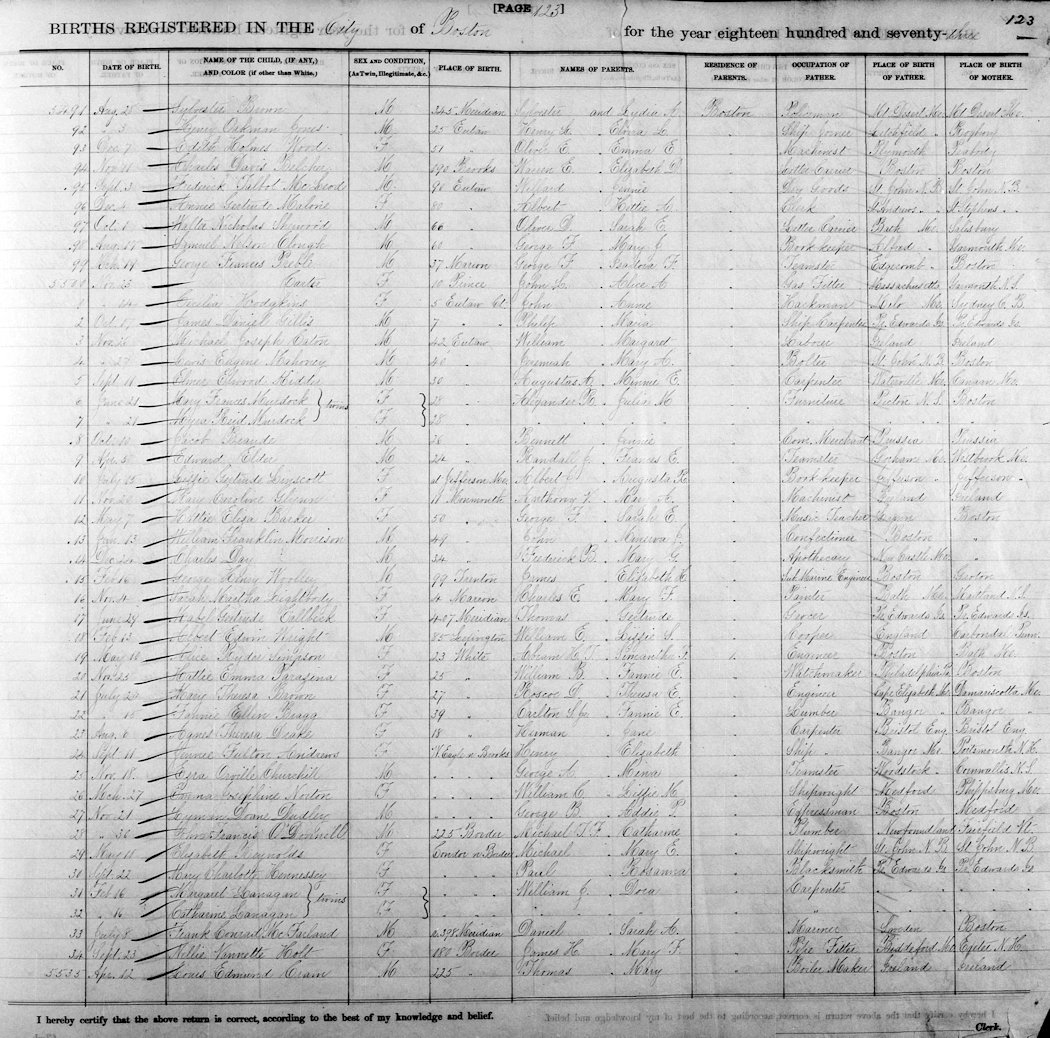 [PAGE 123]
123
BIRTHS REGISTERED IN THE City of Boston for the year eighteen hundred and seventy-three
NO. DATE OF BIRTH. NAME OF THE CHILD, (IF ANY,) AND COLOR (if other than White.) SEX AND CONDITION, (As Twin, Illegitimate, &c.) PLACE OF BIRTH. NAMES OF PARENTS. RESIDENCE OF PARENTS. OCCUPATION OF FATHER. PLACE OF BIRTH OF FATHER. PLACE OF BIRTH OF MOTHER.
5491 Aug. 28 Sylvester Bunn M 345 Meridian Sylvester and Lydia A. Boston Policeman Mt Desert Me. Mt Desert Me.
92 " 3 Henry Oakman Jones M 25 Eutaw Henry L. Elvira L. " Ship Joiner Litchfield " Roxbury
93 Dec. 7 Edith Holmes Wood F 51 " Oliver E. Emma E. " Machinist Plymouth Peabody
94 Nov. 11 Charles Davis Belcher M Brooks Warren E. Elizabeth D. " Letter Carrier Boston Boston
95 Sept. 3 Frederick Talbot McLeod M. 90 Eutaw Willard Jennie " Dry Goods St. John N.B. St. John N.B.
96 Dec. 4 Annie Gertrude Malone F 80 " Albert Hattie A. " Clerk St Andrews " St Stephens "
97 Oct. Nicholas Sherwood M 66 " Oliver D. Sarah E. " Letter Carrier Bath Me. Salisbury
98 Aug. 17 Samuel Nelson Clough M 60 " George F. Mary J. " Book keeper Alfred " Yarmouth Me.
99 Mch. 19 George Francis Preble M 37 Marion George F. Isadora F. " Teamster Edgecomb " Boston
5500 Nov. 23 Carter F 10 Prince John L. Alice A. " Gas Fitter Massachusetts Yarmouth N.S.
1 " 14 Cecilia Hodgkins F 5 Eutaw Pl. John Annie " Hackman Me. Sydney C.B.
2 Oct. 17 James Daniel Gillis M 7 " " Philip Maria " Ship Carpenter Pr. Edwards Is. Pr. Edwards Is.
3 Nov. 26 Michael Joseph Eaton M 42 Eutaw William Margaret " Laborer Ireland Ireland
4 " 27 Lewis Eugene Mahoney M 40 " Jeremiah Mary A. " Bolter St. John N.B. Boston
5 Sept. 11 Elmer Elwood Kidder M 30 " Augustus A. Minnie E. " Carpenter Waterville Me. Canaan Me.
6 June 21 Mary Frances Murdock } twins F } 28 " Alexander R. Julia M. " Furniture Pictou N.S. Boston
7 " 21 Myra Reid Murdock F 28 " " " " " " "
8 Oct. 10 Jacob M 26 " Bennett Jennie " Com. Merchant Prussia Prussia
9 Apr. 5 Edward Elder M 24 " Randall J. Frances E. " Teamster Gorham Me. Westbrook Me.
10 July 13 Gertrude Linscott F at Jefferson Me. Albert Augusta R. " Book keeper Jefferson " Jefferson "
11 Nov. 20 Mary Caroline Glynn F 11 Monmouth Mary A. " Machinist Ireland Ireland
12 May 7 Hattie Eliza Barker F 50 " George F. Sarah E. " Music Teacher Boston
13 Jan. 13 William Franklin Morrison M 49 " John Minerva J. " Confectioner Boston "
14 Dec. 20 Charles Day M 34 " Frederick B. Mary G. " Apothecary New Castle Me. "
15 Feb. 16 George Henry Woolley M 99 Trenton James Elizabeth H. " Sub Marine Engineer Boston Groton
16 Nov. 4 Sarah Martha Lightbody F 4 Marion Charles E. Mary F. " Painter Bath Me. Maitland N.S.
17 June 24 Mabel Gertrude Callbeck F 407 Meridian Thomas Gertrude " Grocer Pr. Edwards Is. Pr. Edwards Is.
18 Feb. 13 Albert Edwin Wright M 85 Lexington William E. Lizzie S. " Cooper England Carbondale Penn.
19 May 10 Alice Ryder Simpson F 23 White Abram H. T. Simantha F. " Engineer Boston Bath Me.
20 Nov. 25 Hattie Emma Tarazina F 25 " William B. Fannie E. " Watchmaker Philadelphia Pa. Boston
21 July 20 Mary Theresa Brown F 27 " Roscoe D. Theresa E. " Engineer Cape Elizabeth Me. Damariscotta Me.
22 " 15 Fannie Ellen Bragg F 39 " Carlton S. Jr. Fannie E. " Lumber Bangor " Bangor "
23 Aug. 6 Agnes Theresa Drake F 18 " Human Jane " Carpenter Bristol Eng. Bristol Eng.
24 Sept. 11 Jennie Fulton Andrews F W. Eagle n Brooks Henry Elizabeth " Ship " Bangor Me. Portsmouth N.H.
25 Nov. 18 Ezra Orville Churchill M " " " George A. Mena " Teamster Woodstock " Cornwallis N.S.
26 Mch. 27 Emma Josephine Norton F " " " William C. Lizzie M. " Shipwright Medford Phippsburg Me.
27 Nov. 21 Lyman Doane Dudley M " " " George B. Addie P. " Expressman Boston Medford
28 " 30 Francis O'Donnell M 225 Border Michael T. F. Catharine " Plumber Newfoundland Fairfield Vt.
29 May 11 Elizabeth Reynolds F Condor n Border Michael Mary E. " Shipwright St. John N.B. St John N.B.
30 Sept. 22 Mary Charlotte Hennessey F " " " Paul Rosanna " Blacksmith Pr. Edwards Is. Pr. Edwards Is.
31 Feb. 16 Margaret Lanagan } twins F } " " " William J. Dora " Carpenter " "
32 " 16 Catharine Lanagan F " " " " " " " "
33 July 8 Frank Conrad McFarland M a.398 Meridian Daniel Sarah A. " Mariner Boston
34 Sept. 23 Nellie Vannette Holt F 180 Border James H. Mary F. " Pipe Fitter Biddeford Me. N.H.
5535 Apr. 12 Louis Edmund Crain M 225 " Thomas Mary " Boiler Maker Ireland Ireland
I hereby certify that the above return is correct, according to the best of my knowledge and belief.
Clerk.